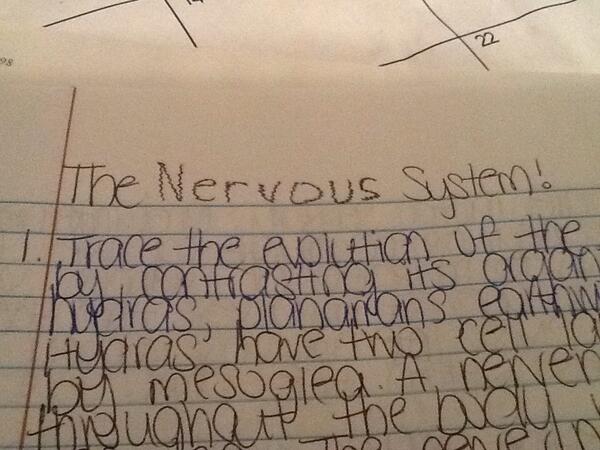 22
98
The Nervous System!
1. Trace the evolution of the
by contrasting its organ
hydras, planarians earthw
Hydras have two cell la
by mesoglea. A
throughout the body
The nerve